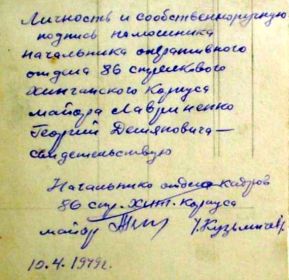 Личность и собственноручную
подпись помошника
начальника оперативного
отдела 86 стрелкового
Хинганского Корпуса
майора Лавриненко
Георгий Демянович —
свидетельствую
Начальник отдела кадров
86 стр. ХИН. Корпуса
майор /Кузьмичев/
10.4.1949г.